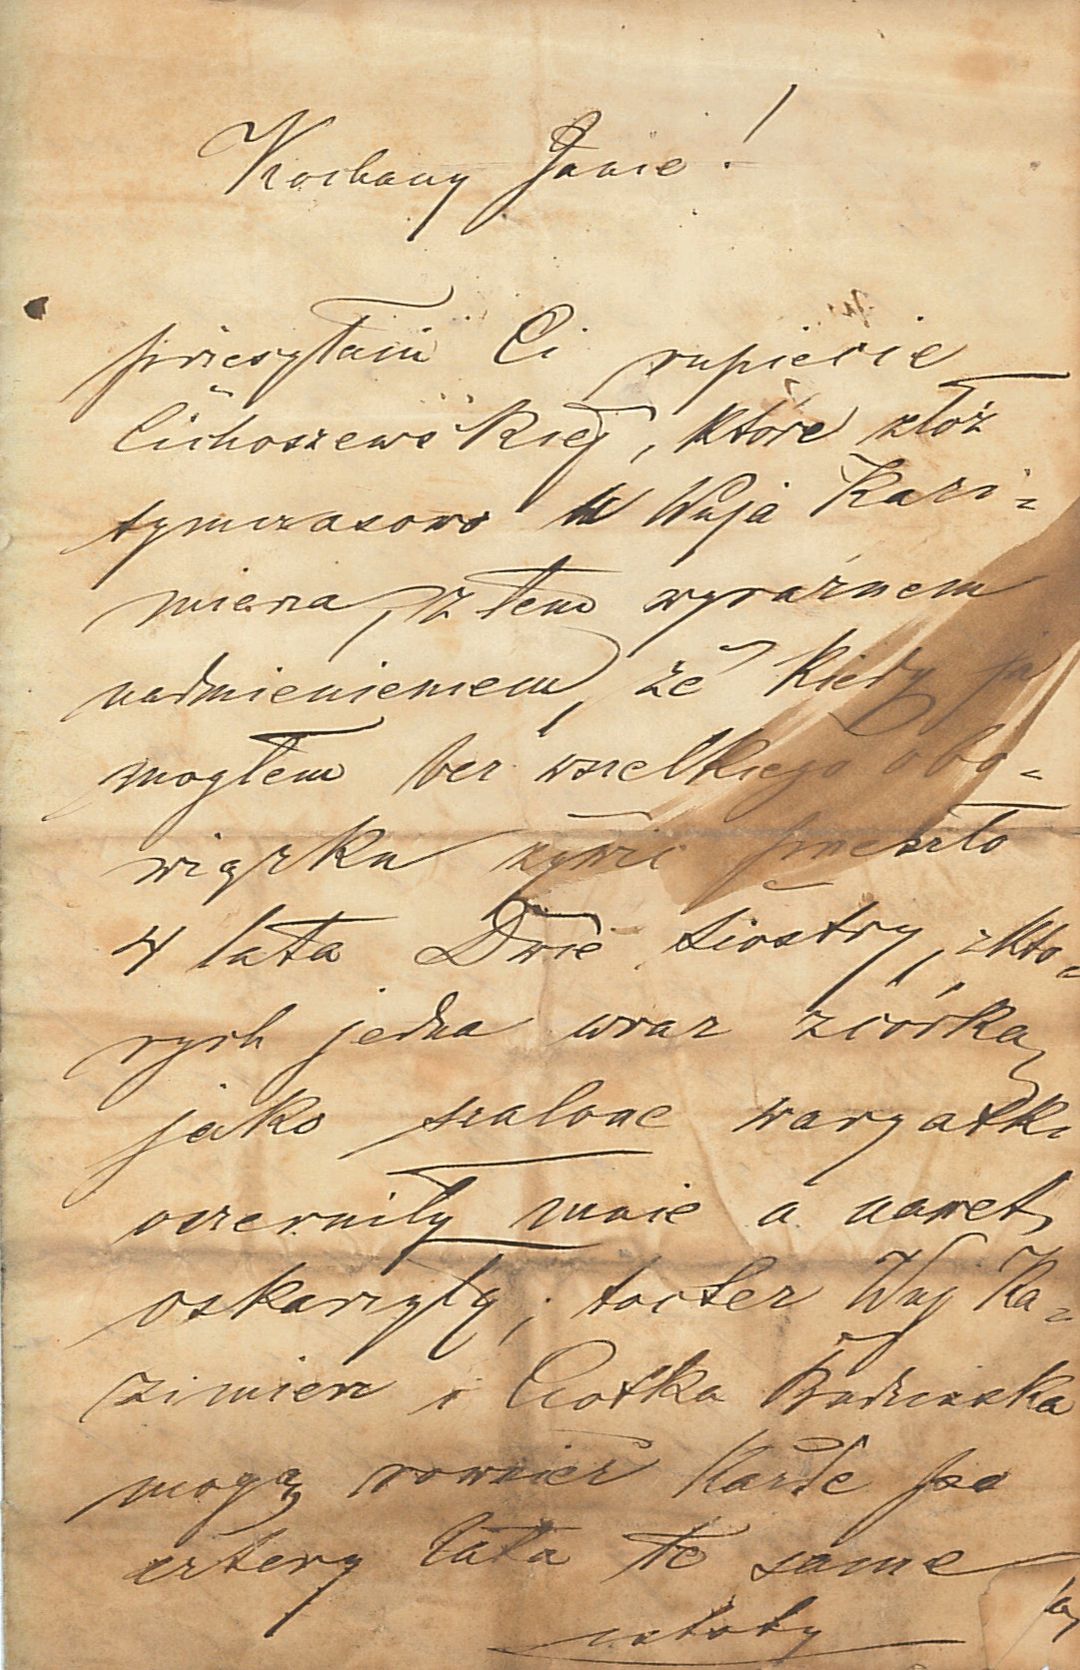 Kochany Janie!
przesyłam Ci rupiecie
Cichoszewskiej, które złóż
tymczasowo u Wuja Kazi=
mierza, z tem wyraźnem
nadmieniemiem, że kiedy ja
mogłem bez wszelkiego obo=
wiązku żywić przeszło
4 lata Dwie siostry, z kto=
rych jedna wraz z córką
jako szalone waryatki
oczerniły mnie a nawet
oskarżyły; toć też Wuj Ka=
zimierz i Ciotka
mogą rownież Karde po
cztery lata te same